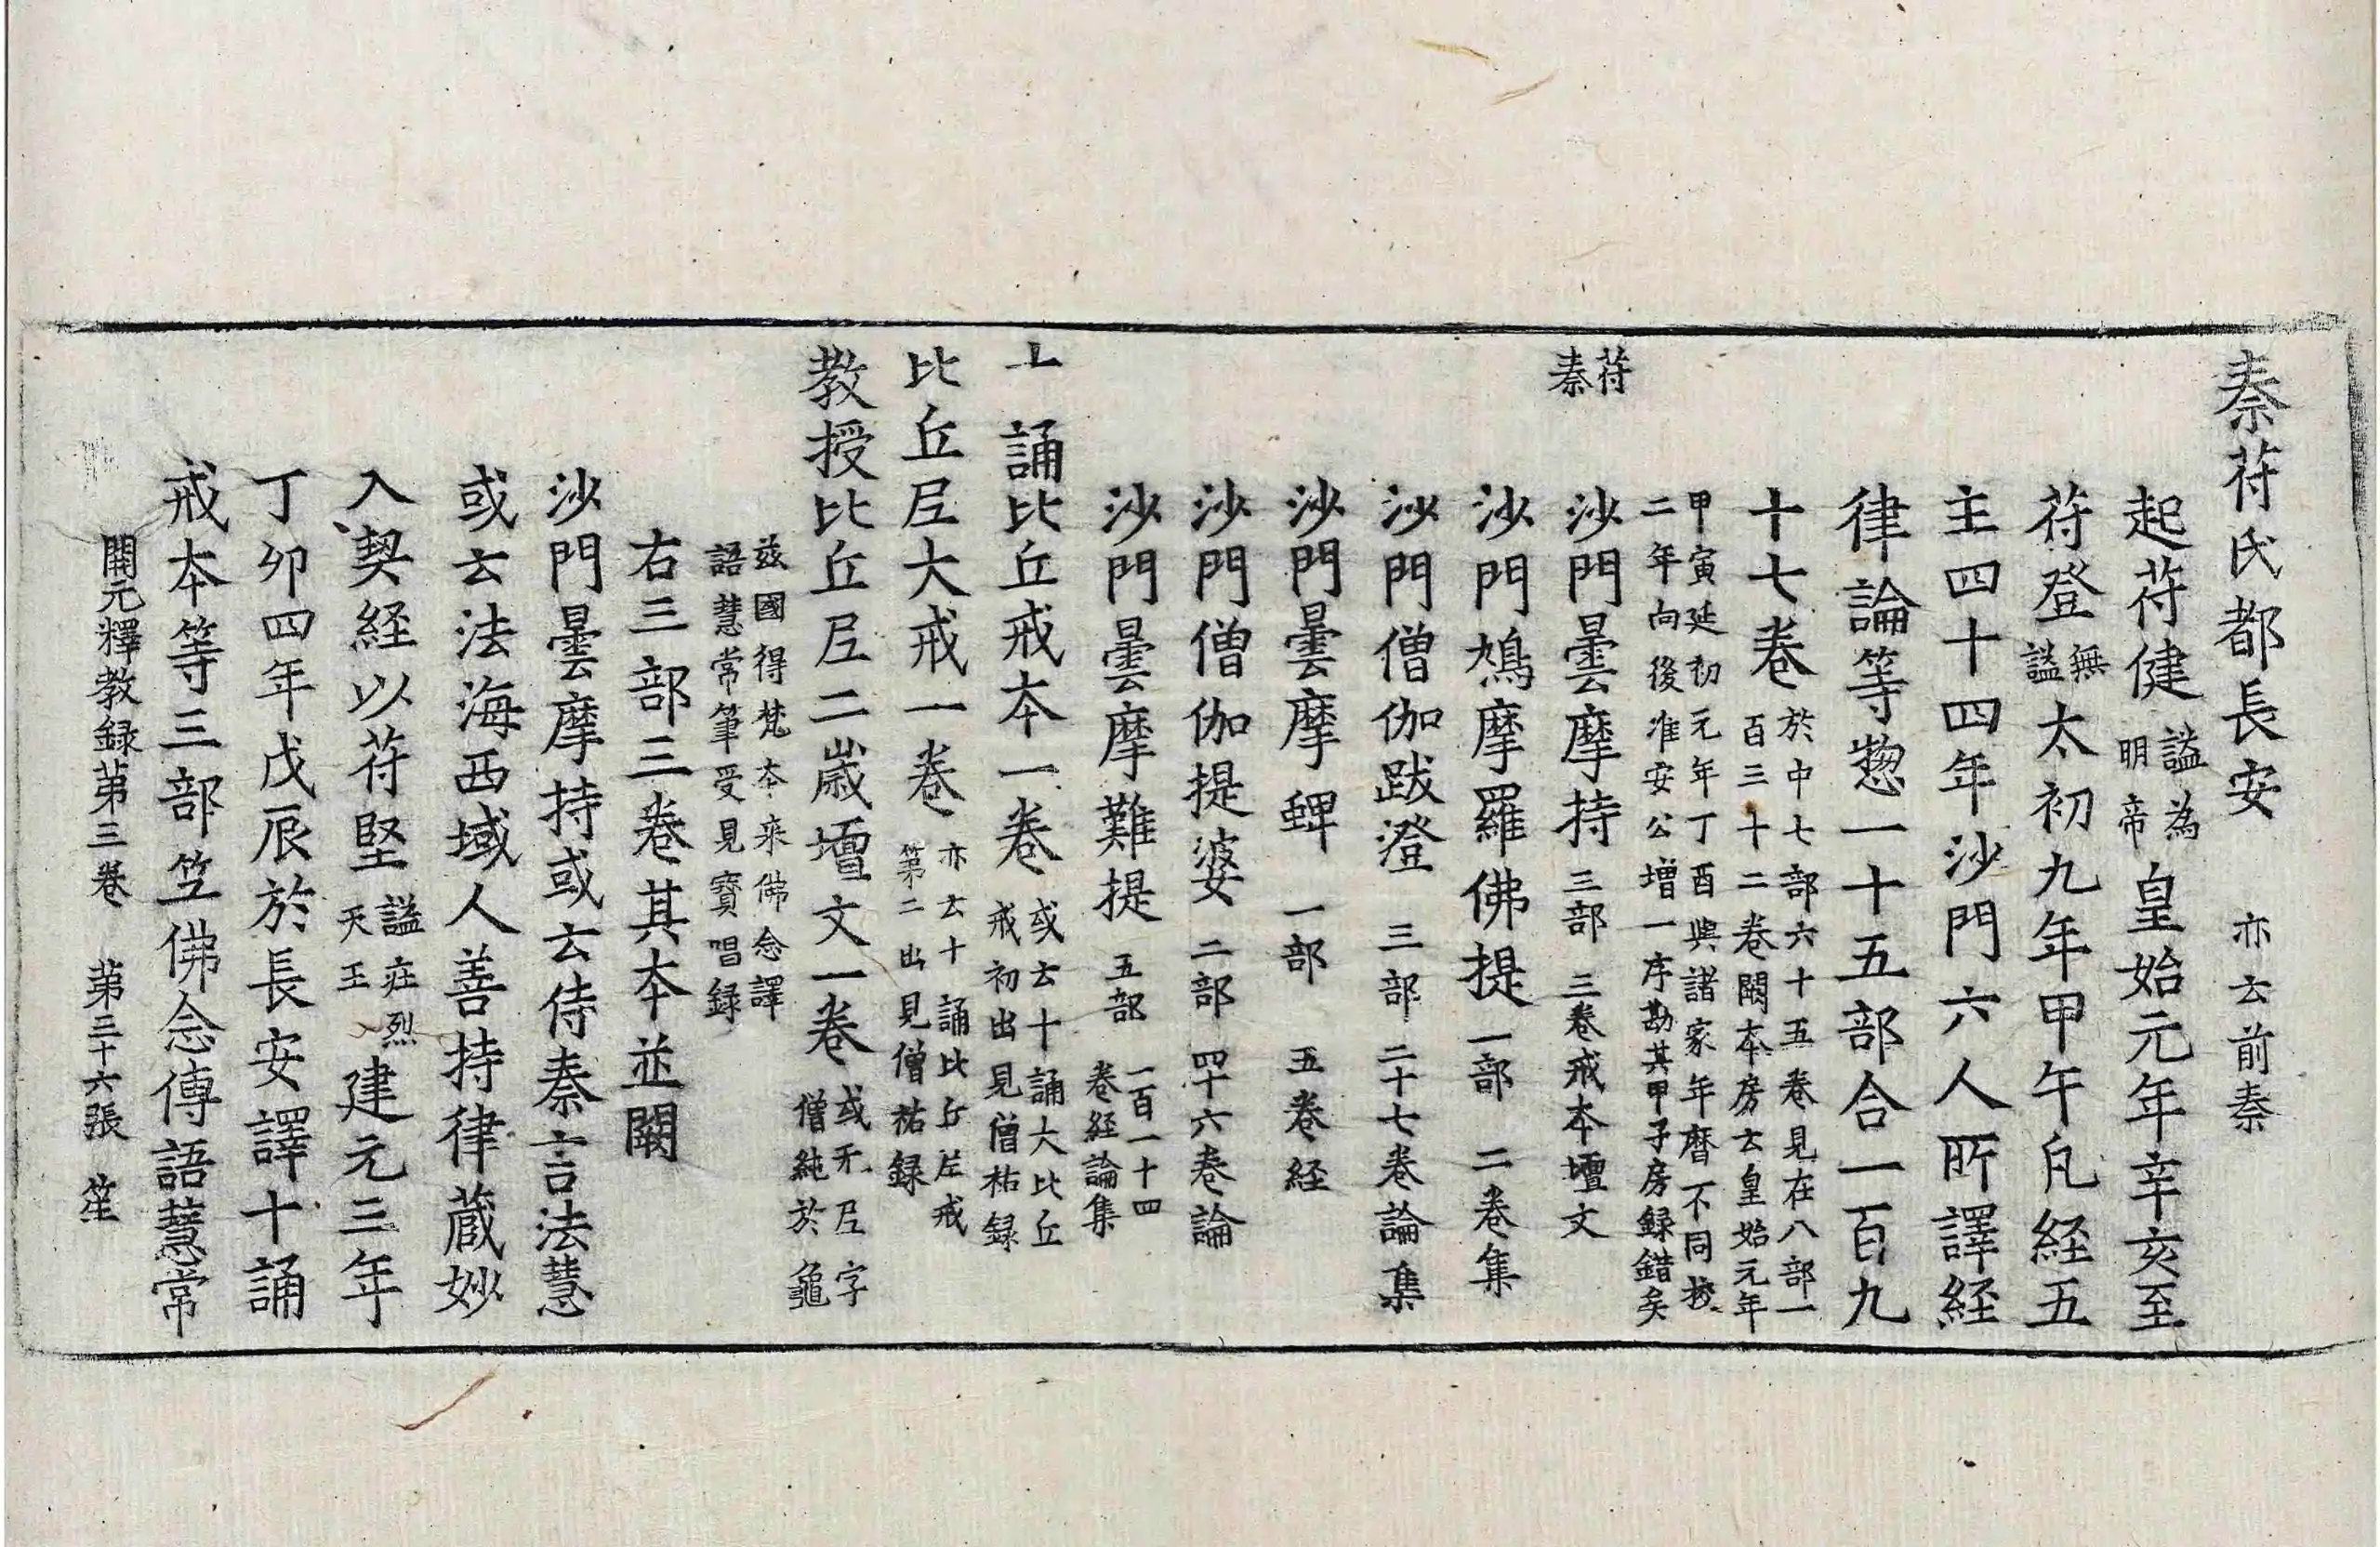 秦苻氏都長安 亦云前秦
起苻健 謚為明帝 皇始元年辛亥至
苻登 無謚 太初九年甲午凡経五
主四十四年沙門六人所譯経
律論等惣一十五部合一百九
十七卷 於中七部六十五卷見在八部一百三十二卷闕本房云皇始元年
甲寅延初元年丁酉與諸家年曆不同挍
二年向後准安公增一序勘其甲子房録錯矣
苻秦
沙門曇摩持 三部 三卷戒本壇文
沙門鳩摩羅佛提 一部 二卷集
沙門僧伽跋澄 三部 二十七卷論集
沙門曇摩蜱 一部 五卷経
沙門僧伽提婆 二部 四十六卷論
沙門曇摩難提 五部 一百一十四卷経論集
十誦比丘戒本一卷 或云十誦大比丘戒初出見僧祐録
比丘尼大戒一卷 亦云十誦比丘尼戒第二出見僧祐録
教授比丘尼二歳壇文一卷 或无尼字僧純於龜
兹國得梵本来佛念譯
語慧常筆受見寶唱録
右三部三卷其本並闕
沙門曇摩持或云侍秦言法慧
或云法海西域人善持律蔵妙
入契経以苻堅 謚莊烈天王 建元三年
丁卯四年戊辰於長安譯十誦
戒本等三部竺佛念傳語慧常
開元釋教録苐三卷 苐三十六張 笙